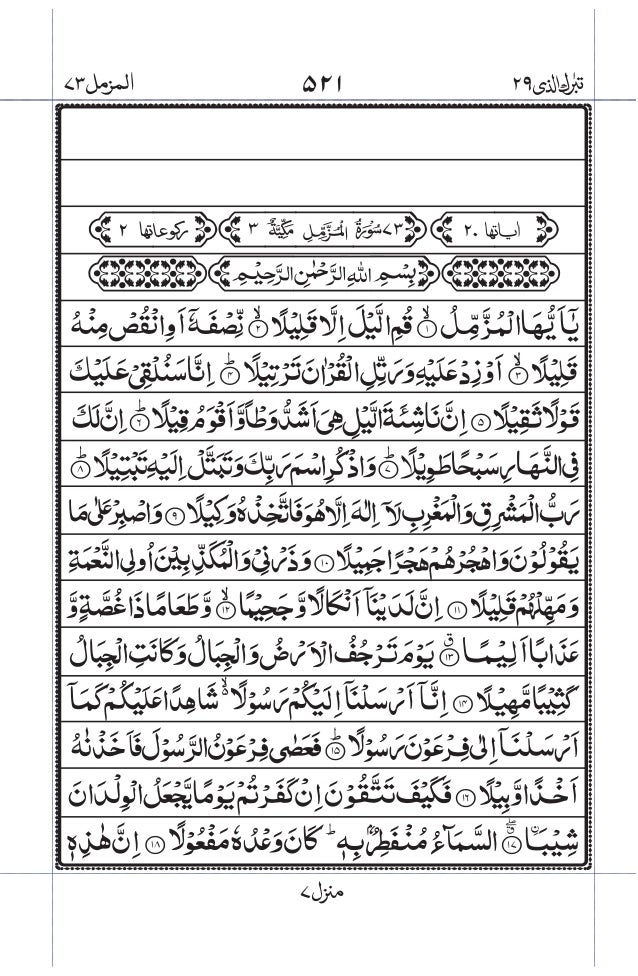 تبٰرك الذی ۲۹
۵۲۱
المزمل ۷۳
اٰیاتها ۲۰
۷۳ سُوْرَةُ الْمُزَّمِّلِ مَكِّیَّةٌ ۳
ركوعاتها ۲
بِسْمِ اللّٰهِ الرَّحْمٰنِ الرَّحِیْمِ
یٰۤاَیُّهَا الْمُزَّمِّلُ ۙ﴿۱﴾ قُمِ الَّیْلَ اِلَّا قَلِیْلًا ۙ﴿۲﴾ نِّصْفَهٗۤ اَوِ انْقُصْ مِنْهُ
قَلِیْلًا ۙ﴿۳﴾ اَوْ زِدْ عَلَیْهِ وَ رَتِّلِ الْقُرْاٰنَ تَرْتِیْلًا ؕ﴿۴﴾ اِنَّا سَنُلْقِیْ عَلَیْكَ
قَوْلًا ثَقِیْلًا ﴿۵﴾ اِنَّ نَاشِئَةَ الَّیْلِ هِیَ اَشَدُّ وَطْاً وَّ اَقْوَمُ قِیْلًا ؕ﴿۶﴾ اِنَّ لَكَ
فِی النَّهَارِ سَبْحًا طَوِیْلًا ؕ﴿۷﴾ وَ اذْكُرِ اسْمَ رَبِّكَ وَ تَبَتَّلْ اِلَیْهِ تَبْتِیْلًا ؕ﴿۸﴾
رَبُّ الْمَشْرِقِ وَ الْمَغْرِبِ لَاۤ اِلٰهَ اِلَّا هُوَ فَاتَّخِذْهُ وَكِیْلًا ﴿۹﴾ وَ اصْبِرْ عَلٰی مَا
یَقُوْلُوْنَ وَ اهْجُرْهُمْ هَجْرًا جَمِیْلًا ﴿۱۰﴾ وَ ذَرْنِیْ وَ الْمُكَذِّبِیْنَ اُولِی النَّعْمَةِ
وَ مَهِّلْهُمْ قَلِیْلًا ﴿۱۱﴾ اِنَّ لَدَیْنَاۤ اَنْكَالًا وَّ جَحِیْمًا ۙ﴿۱۲﴾ وَّ طَعَامًا ذَا غُصَّةٍ وَّ
عَذَابًا اَلِیْمًا ۗ﴿۱۳﴾ یَوْمَ تَرْجُفُ الْاَرْضُ وَ الْجِبَالُ وَ كَانَتِ الْجِبَالُ
كَثِیْبًا مَّهِیْلًا ﴿۱۴﴾ اِنَّاۤ اَرْسَلْنَاۤ اِلَیْكُمْ رَسُوْلًا ۙ۬ شَاهِدًا عَلَیْكُمْ كَمَاۤ
اَرْسَلْنَاۤ اِلٰی فِرْعَوْنَ رَسُوْلًا ؕ﴿۱۵﴾ فَعَصٰی فِرْعَوْنُ الرَّسُوْلَ فَاَخَذْنٰهُ
اَخْذًا وَّبِیْلًا ﴿۱۶﴾ فَكَیْفَ تَتَّقُوْنَ اِنْ كَفَرْتُمْ یَوْمًا یَّجْعَلُ الْوِلْدَانَ
شِیْبَاۨ ۖۗ﴿۱۷﴾ السَّمَآءُ مُنْفَطِرٌۢ بِهٖ ؕ كَانَ وَعْدُهٗ مَفْعُوْلًا ﴿۱۸﴾ اِنَّ هٰذِهٖ
منزل ۷